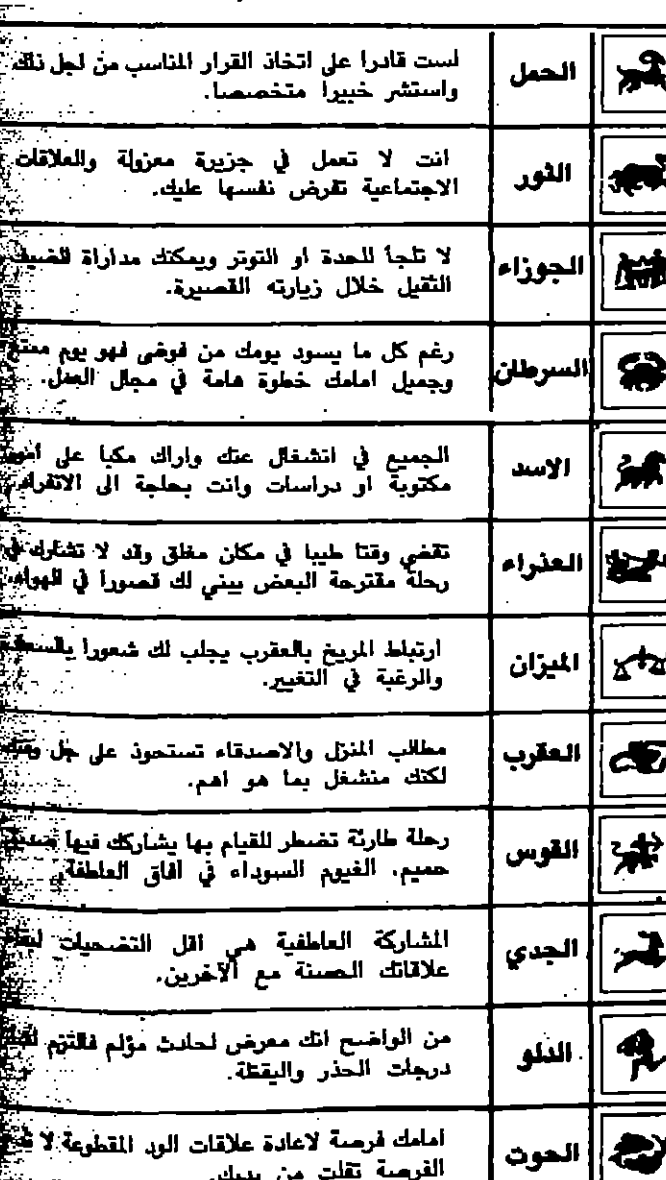 الحمل
لست قادرا على اتخاذ القرار المناسب من اجل ذلك
واستشر خبيرا متخصصا.
الثور
انت لا تعمل في جزيرة معزولة والعلاقات
الاجتماعية تفرض نفسها عليك.
الجوزاء
لا تلجأ للحدة او التوتر ويمكنك مداراة الضيف
الثقيل خلال زيارته القصيرة.
السرطان
رغم كل ما يسود يومك من فوضى فهو يوم ممتع
وجميل امامك خطوة هامة في مجال العمل.
الاسد
الجميع في انشغال عنك واراك مكبا على
مكتوبة او دراسات وانت بحاجة الى
العذراء
تقضي وقتا طيبا في مكان مغلق وقد لا تشارك في
رحلة مقترحة البعض يبني لك قصورا في الهواء.
الميزان
ارتباط المريخ بالعقرب يجلب لك شعورا
والرغبة في التغيير.
العقرب
مطالب المنزل والاصدقاء تستحوذ على جل وقتك
لكنك منشغل بما هو اهم.
القوس
رحلة طارئة تضطر للقيام بها يشاركك فيها صديق
حميم. الغيوم السوداء في آفاق العاطفة
الجدي
المشاركة العاطفية هي اقل التضحيات
علاقاتك الحسنة مع الآخرين.
الدلو
من الواضح انك معرض لحادث مؤلم فالتزم
درجات الحذر واليقظة.
الحوت
امامك فرصة لاعادة علاقات الود المقطوعة لا
الفرصة تفلت من يديك.